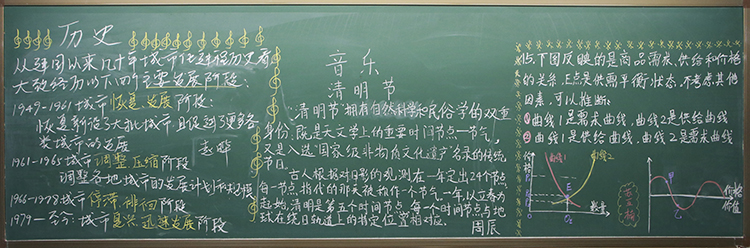 历史
从建国以来几十年城市化过程历史看
大致经历以下四个主要发展阶段:
1949-1961城市恢复发展阶段:
恢复新设了大批城市且促进了更多各
类城市的发展
赵晔
1961-1965城市调整压缩阶段
调整各地城市的发展计划和规模
1966-1978城市停滞徘徊阶段
1979-至今:城市复兴迅速发展阶段
音乐
清明节
"清明节"拥有自然科学和民俗学的双重
身份,既是天文学上的重要时间节点一节气,
又是入选"国家级非物质文化遗产"名录的传统
节日。
古人根据对日影的观测在一年定出24个节点
每一节点指代的那天被称作一个节气,一年,以立春为
起始,清明是第五个时间节点,每一个时间节点与地
球在绕日轨道上的特定位置相对应。
周辰
15.下图反映的是商品需求、供给和价格
的关系,E点是供需平衡状态,不考虑其他
因素,可以推断:
①曲线1是需求曲线,曲线2是供给曲线
②曲线1是供给曲线,曲线2是需求曲线
价格
曲线1
曲线2
E
数量
0
甲
乙
价格
价值